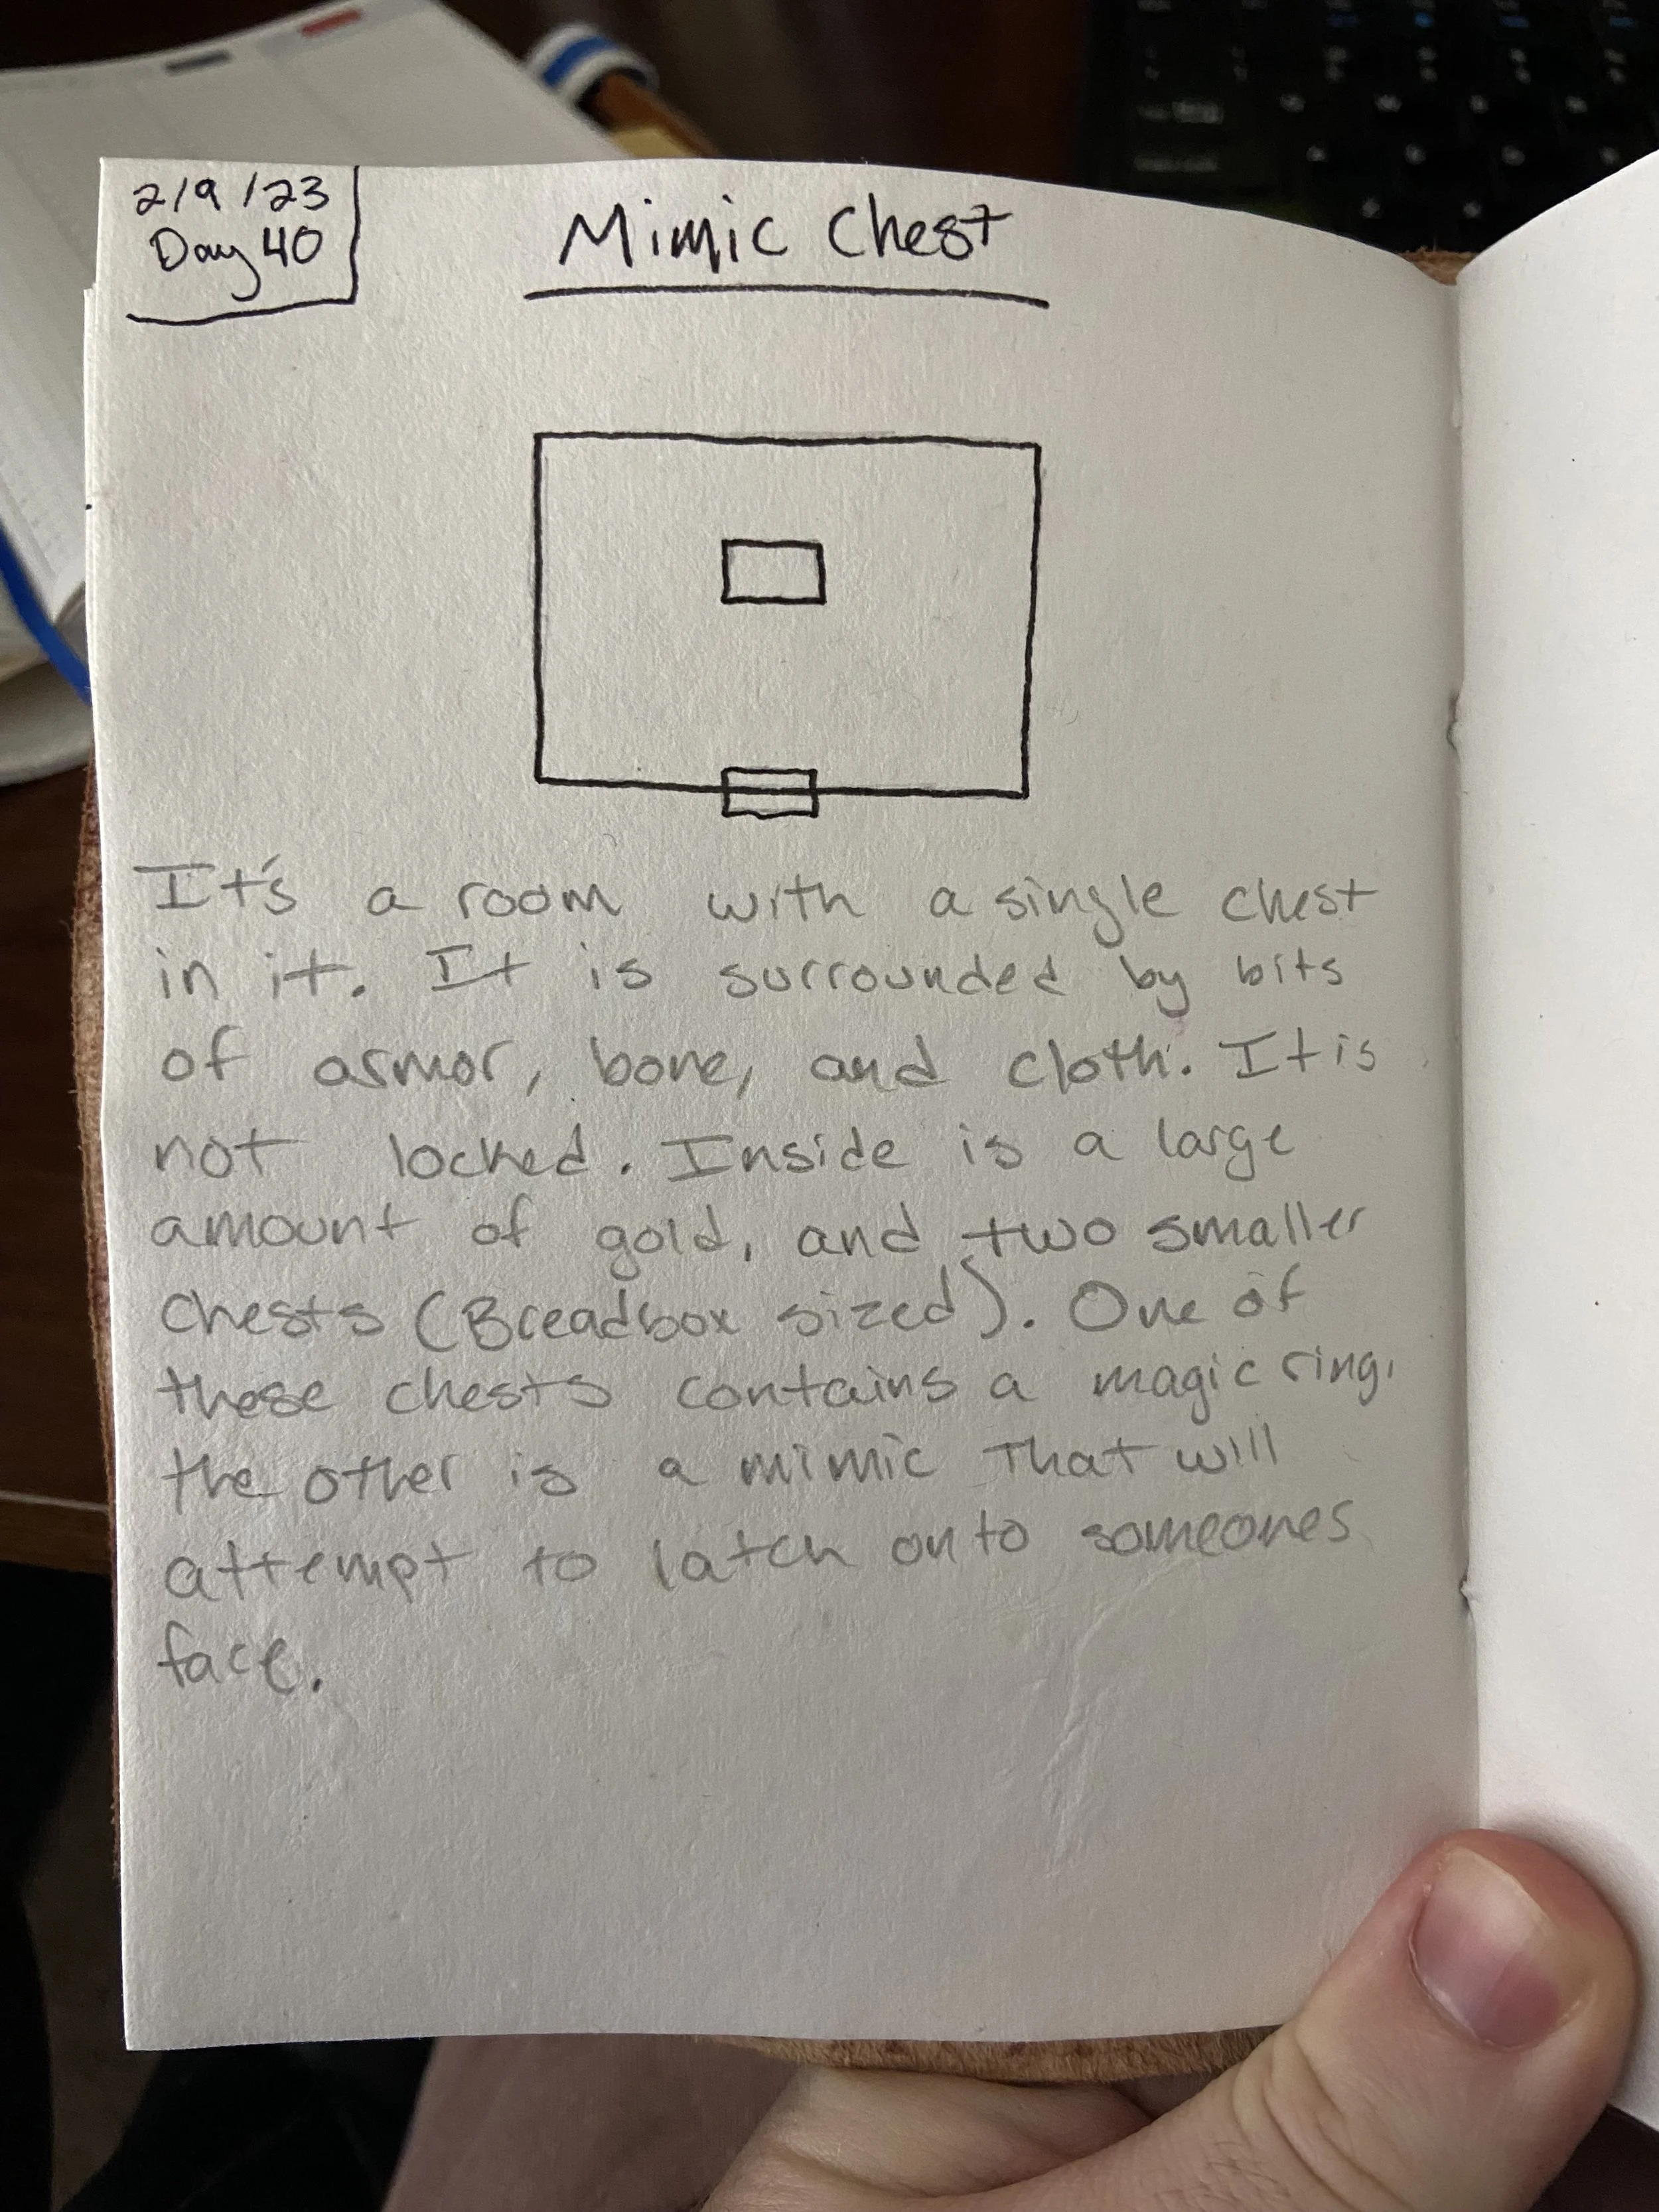 2/9/23
Day 40
Mimic Chest
It's a room with a single chest
in it. It is surrounded by bits
of armor, bone, and cloth. It is
not locked. Inside is a large
amount of gold, and two smaller
chests (Breadbox sized). One of
these chests contains a magic ring,
the other is a mimic that will
attempt to latch onto someones
face.